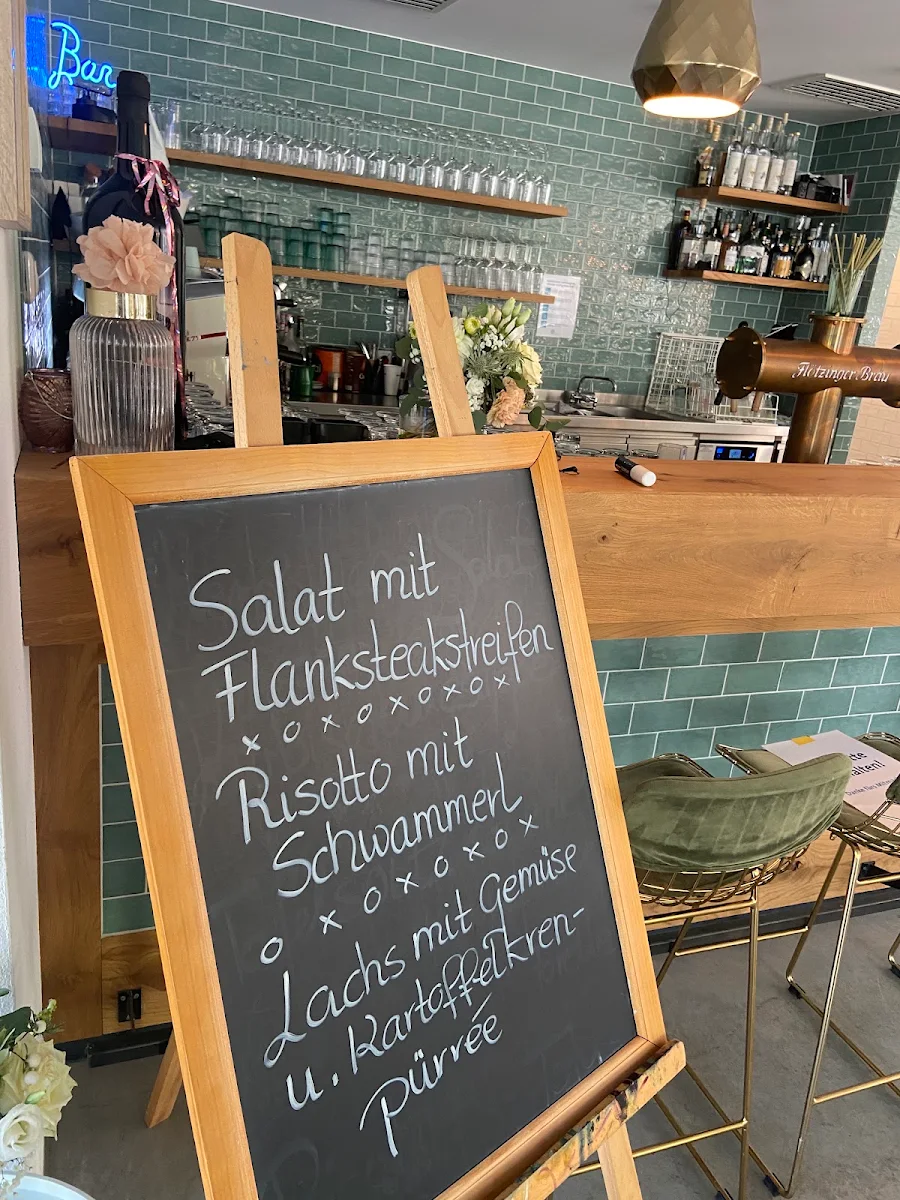 Bar
Flötzinger Bräu
Salat mit
Flanksteakstreifen
x o x o x o x o x
Risotto mit
Schwammerl
o x o x o x o x
Lachs mit Gemüse
u. Kartoffelkren-
pürrée